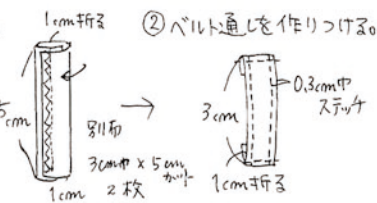 1cm折る
②ベルト通しを作りつける。
5cm
別布
3cm巾 × 5cm
カット
2枚
1cm
3cm
0.3cm巾
ステッチ
1cm折る